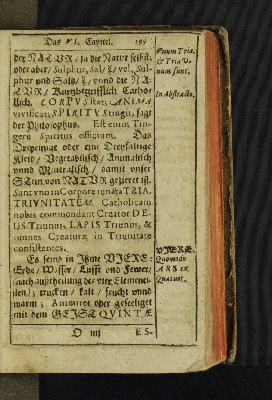 Das VI. Capitel. 199
der NATVR / in die Natur selbst,
oder aber / Sulphur, Sal / vel, Sul-
phur vnd Salz / vnnd die NA-
TVR / Kurtzbegrifflich Catho-
lisch. CORPVS stat; ANIMA
vivificat; SPIRITVS tingit, sagt
der Philosophus. Est enim Tin-
gere Spiritus officium. Das
Dreyeinige oder eine Dreyfaltige
Kleid / Vegetabilisch / Animalisch
vnnd Mineralisch / damit vnser
Stein von NATVR gezieret ist.
Sunt vno in Corpore iuncta TRIA.
TRIVNITATEM Catholicam
nobis commondant Creator DE-
US Triunus, LAPIS Triunus, &
omnes Creaturæ in Triunitate
consistentes.
Es seind in Ihme VIERE:
Erde / Wasser / Lufft vnd Fewer /
(nach außtheilung der vier Elemen-
ten) ; trucken / kalt / feucht vnnd
warm ; Animirt oder geseeliget
mit dem GEIST QVINTÆ
O iiij ES-
Vnum Tria,
& Tria V-
num sunt.
In Abstracto,
VIERE.
Quomodo
ARS ex
Quatuor.